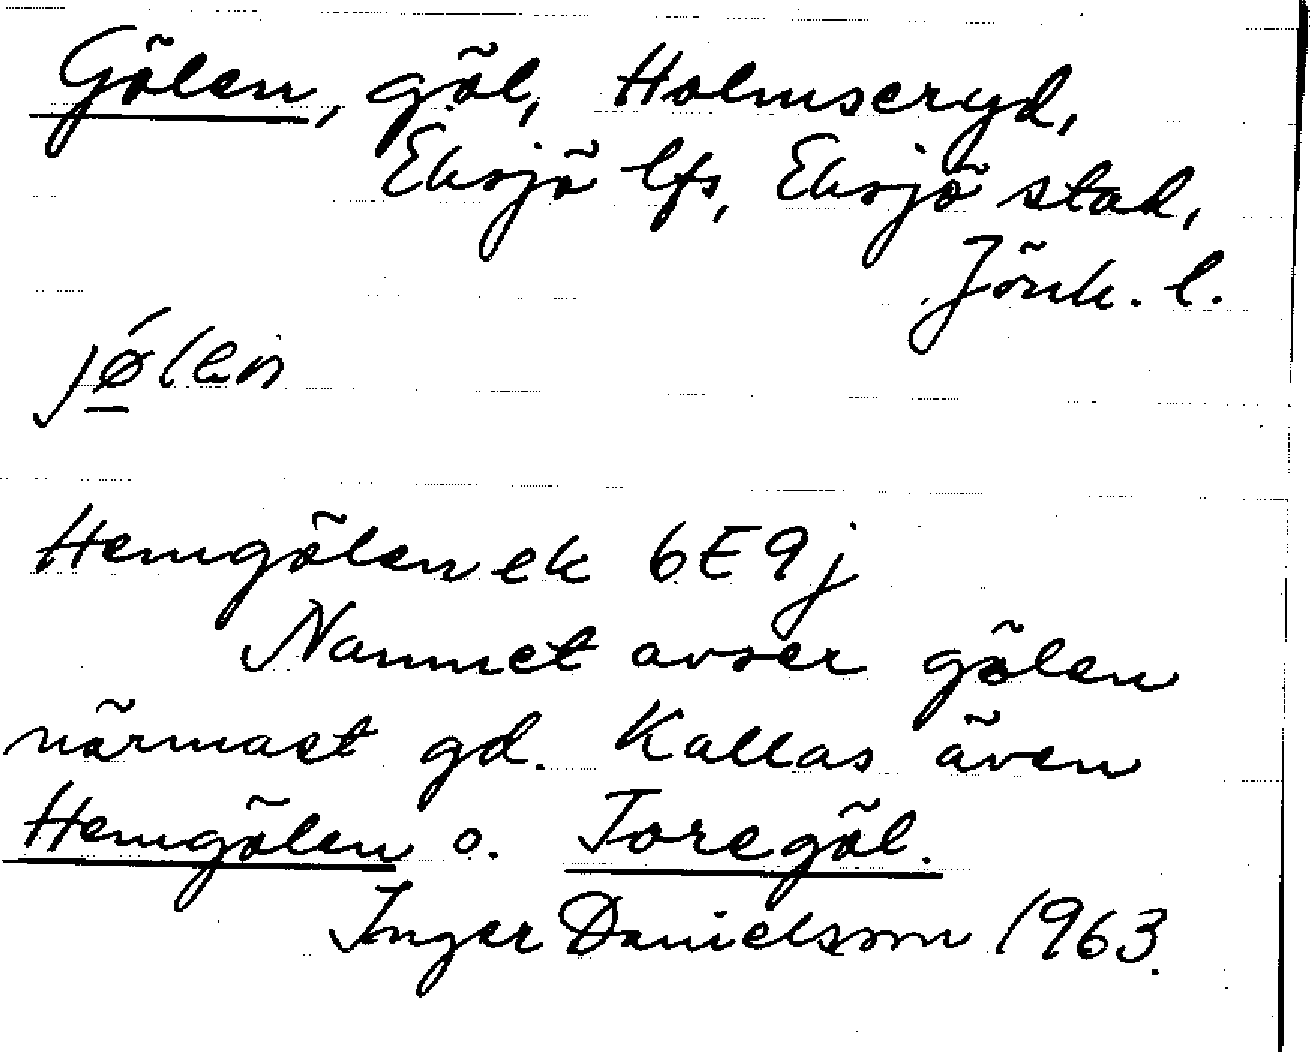 Gölen, göl, Holmseryd,
Eksjö lfs, Eksjö stad,
Jönk. l.
jǿlen
Hemgölen ek 6E9j
Namnet avser gölen
närmast gd. Kallas även
Hemgölen o. Toregöl.
Inger Danielsson 1963.